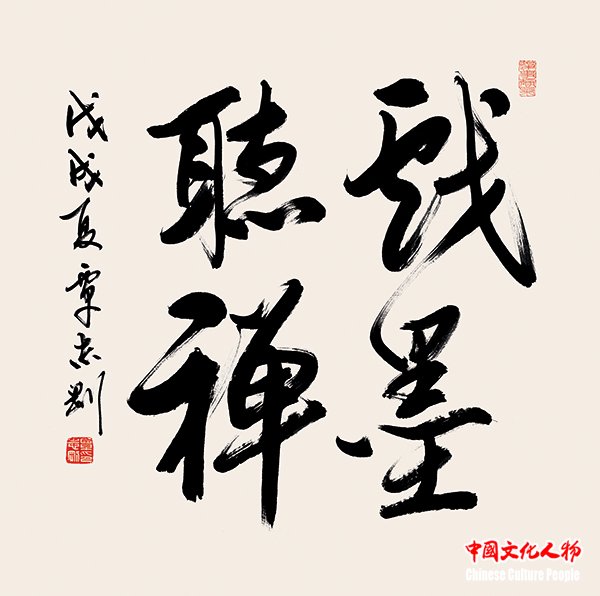 戲墨
聽禪
戊戌夏覃志剛
中國文化人物
Chinese Culture People